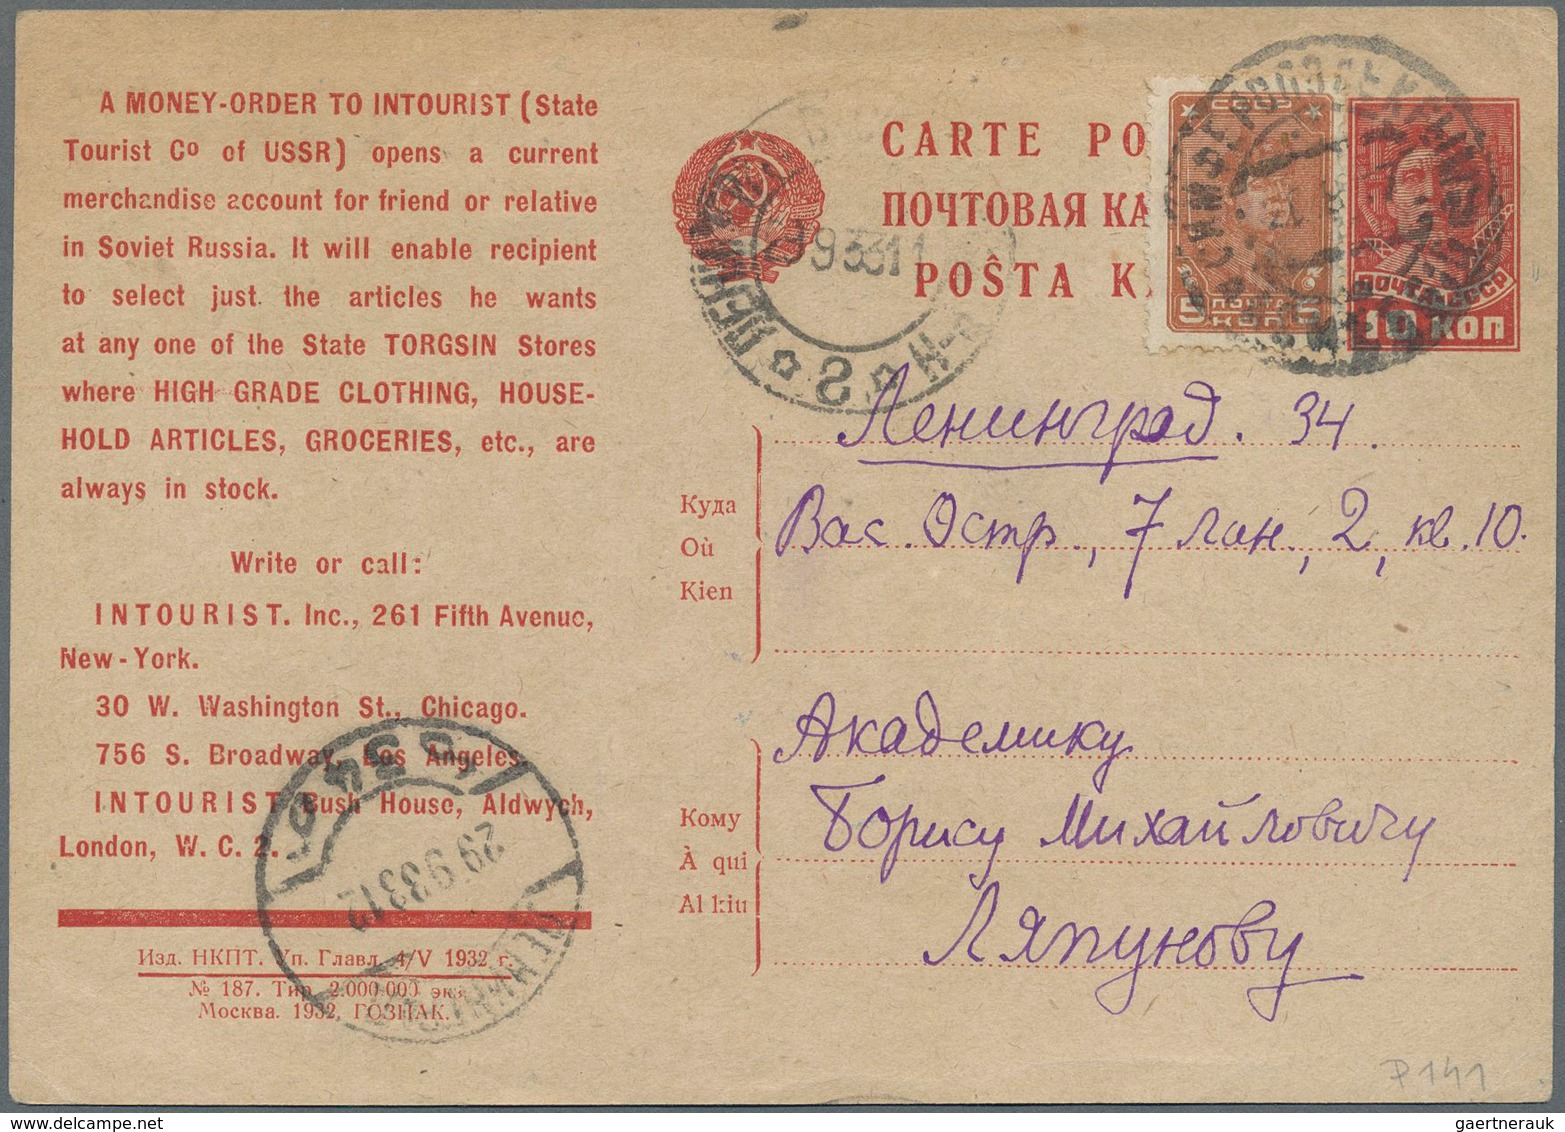 A MONEY-ORDER TO INTOURIST (State
Tourist Co of USSR) opens a current
merchandise account for friend or relative
in Soviet Russia. It will enable recipient
to select just the articles he wants
at any one of the State TORGSIN Stores
where HIGH GRADE CLOTHING, HOUSE-
HOLD ARTICLES, GROCERIES, etc., are
always in stock.
Write or call:
INTOURIST. Inc., 261 Fifth Avenue,
New-York.
30 W. Washington St., Chicago.
756 S. Broadway, Los Angeles.
INTOURIST Bush House, Aldwych,
London, W. C. 2.
Изд. НКПТ. Уп. Главл. 4/V 1932 г.
№ 187. Тир. 2.000.000 экз.
Москва. 1932, ГОЗНАК.
29 9 33 12
ЛЕНИНГРАД
CARTE PO
ПОЧТОВАЯ КА
POŜTA K
СССР
5 ПОЧТА 5
КОП
ПОЧТА СССР
10 КОП
Куда
Où
Kien
Ленинград. 34.
Вас. Остр., 7 лин., 2, кв. 10.
Кому
À qui
Al kiu
Академику
Борису Михайловичу
Ляпунову
P 141
gaertnerauk